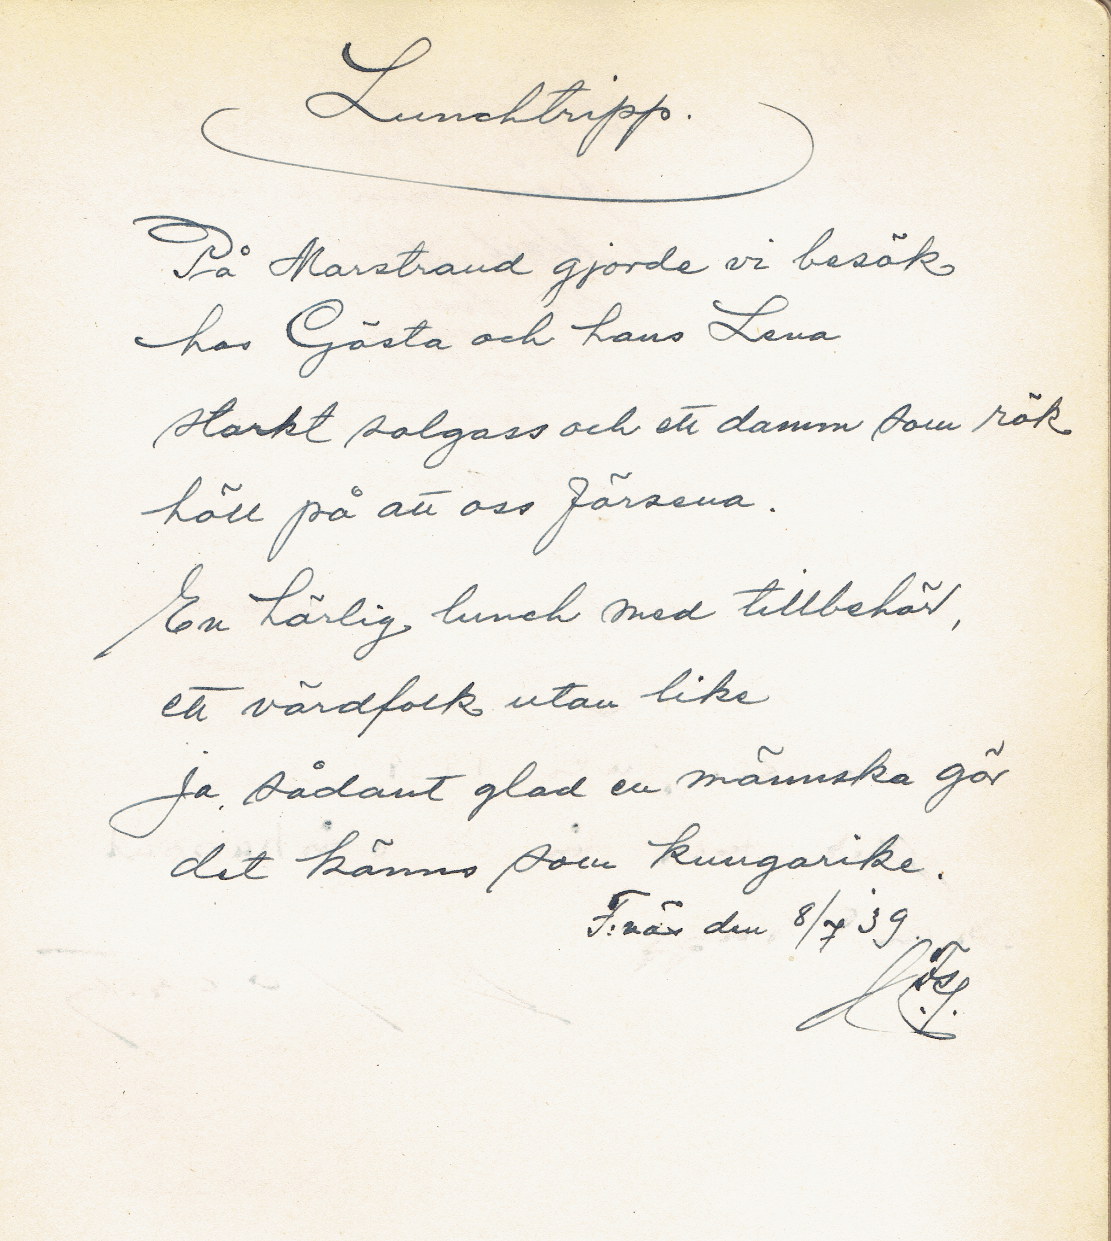 Lunchtripp.
På Marstrand gjorde vi besök
hos Gösta och hans Lena
starkt solgass och ett damm som rök
höll på att oss försena.
En härlig lunch med tillbehör,
ett värdfolk utan like
ja, sådant glad en männska gör
det känns som kungarike.
F:näs den 8/7 39.